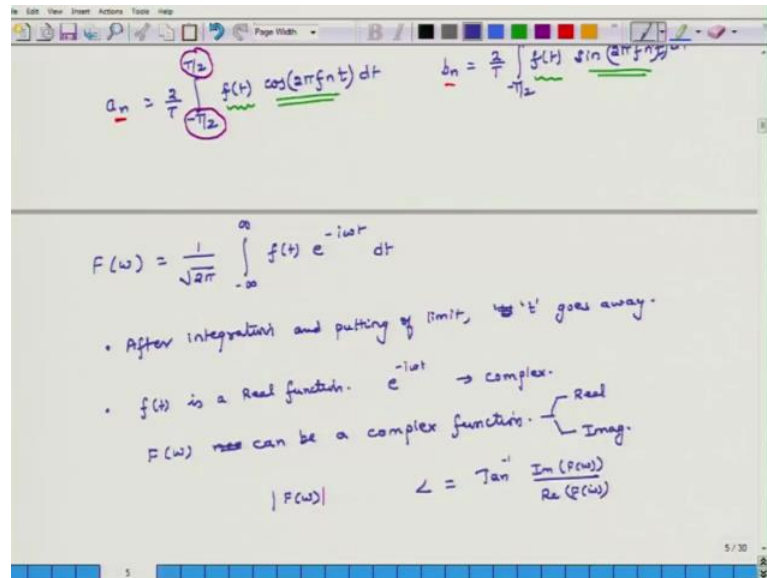 Edit View Insert Actions Tools Help
Page Width
B I
aₙ = 2/T ∫_{-T/2}^{T/2} f(t) cos(2πfnt) dt    bₙ = 2/T ∫_{-T/2} f(t) sin(2πfnt) dt
F(ω) = 1/√2π ∫_{-∞}^{∞} f(t) e^{-iωt} dt
• After integration and putting of limit, 't' goes away.
• f(t) is a Real function. e^{-iωt} → complex.
F(ω) can be a complex function. Real
Imag.
|F(ω)|    ∠ = Tan⁻¹ Im (F(ω)) / Re (F(ω))
5 / 30
5